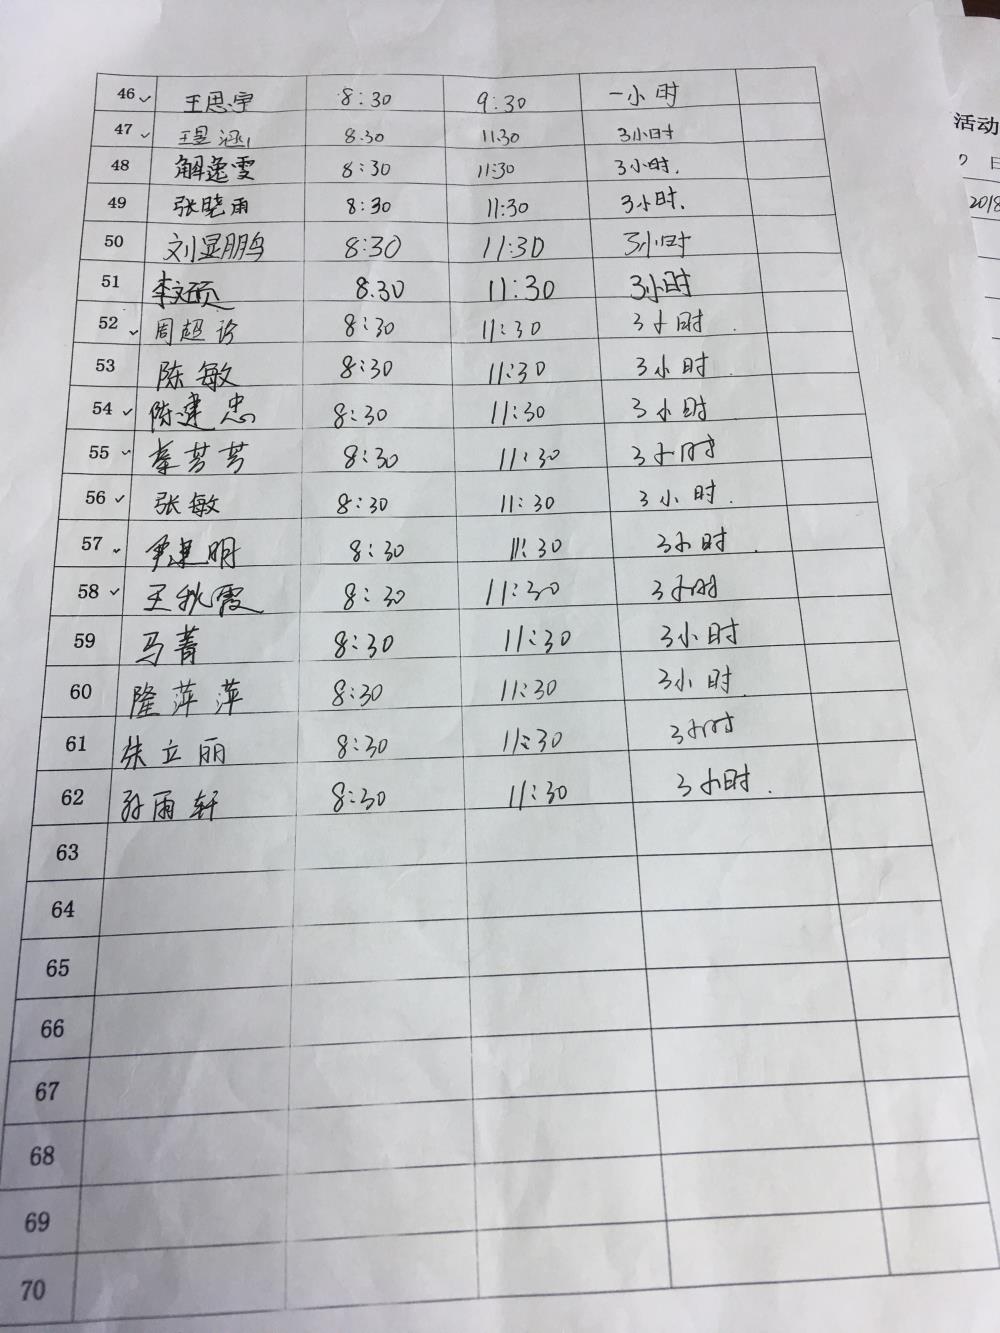 46 ✓ 王思宇 8:30 9:30 一小时
47 ✓ 王昱涵 8.30 11.30 3小时
48 解逸雯 8:30 11:30 3小时.
49 张晓雨 8:30 11:30 3小时.
50 刘显鹏 8:30 11:30 3小时
51 李文硕 8.30 11:30 3小时
52 ✓ 周超 8:30 11:30 3小时.
53 陈敏 8:30 11:30 3小时.
54 ✓ 陈建忠 8:30 11:30 3小时
55 ✓ 秦芳芳 8:30 11:30 3小时
56 ✓ 张敏 8:30 11:30 3小时.
57 ✓ 尹建明 8:30 11:30 3小时.
58 ✓ 王秋霞 8:30 11:30 3小时
59 马菁 8:30 11:30 3小时
60 隆萍萍 8:30 11:30 3小时.
61 朱立丽 8:30 11:30 3小时
62 孙雨轩 8:30 11:30 3小时.
63
64
65
66
67
68
69
70
活动
日
2018